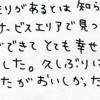 もりがあるとは知ら
ナービスエリアで見っ
ができてとても幸せ
した。久しぶりに
たがおいしかった